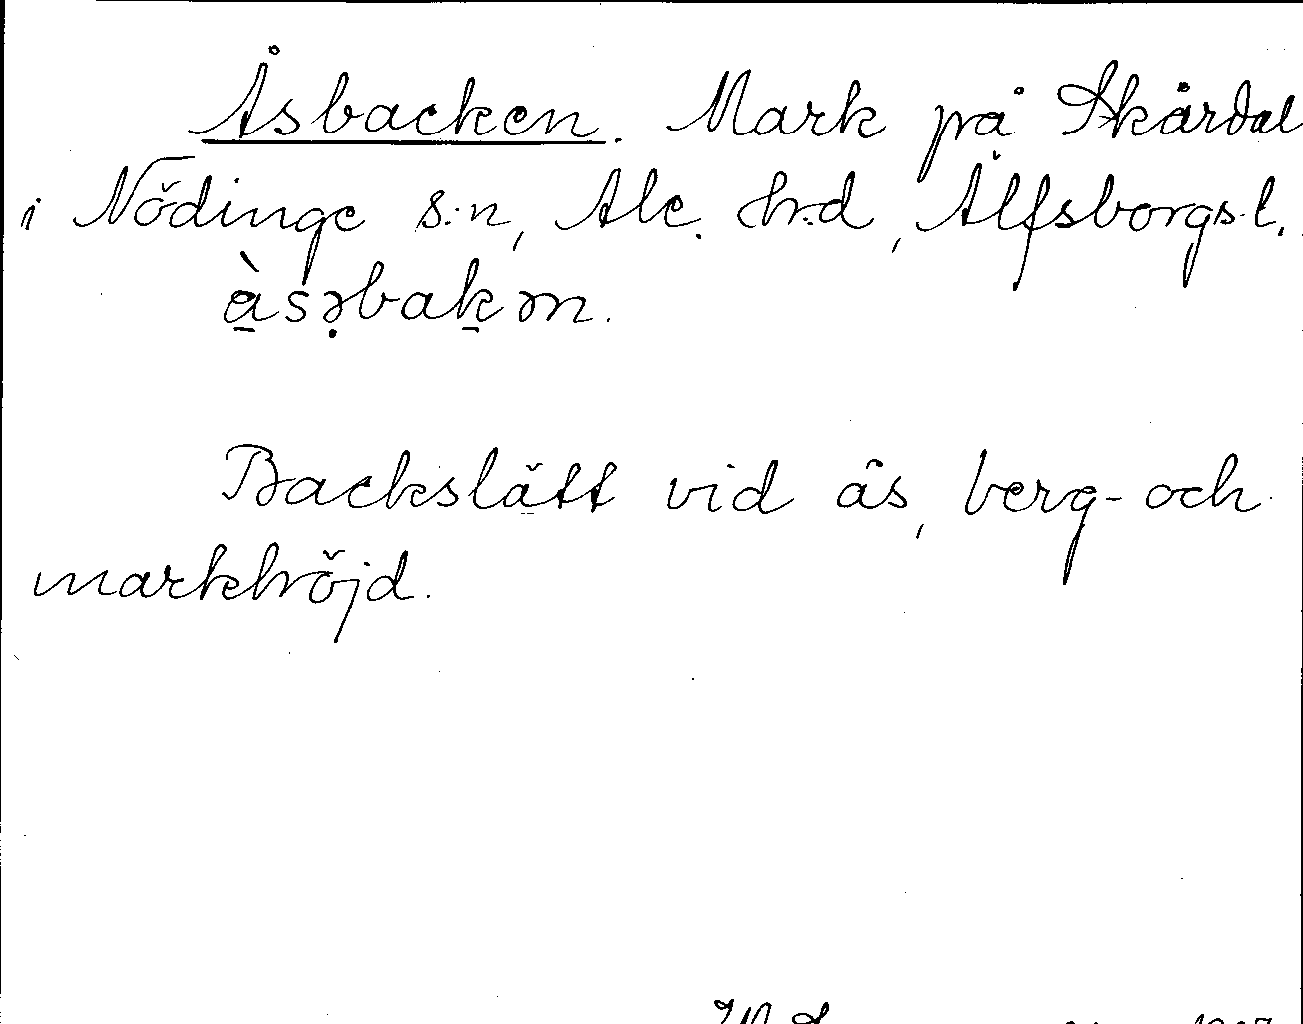 Åsbacken. Mark på Skårdal
i Nödinge s:n, Ale. hr:d, Älfsborgs l.
à̱sə̣baḵən.
Backslätt vid ås, berg- och
markhöjd.